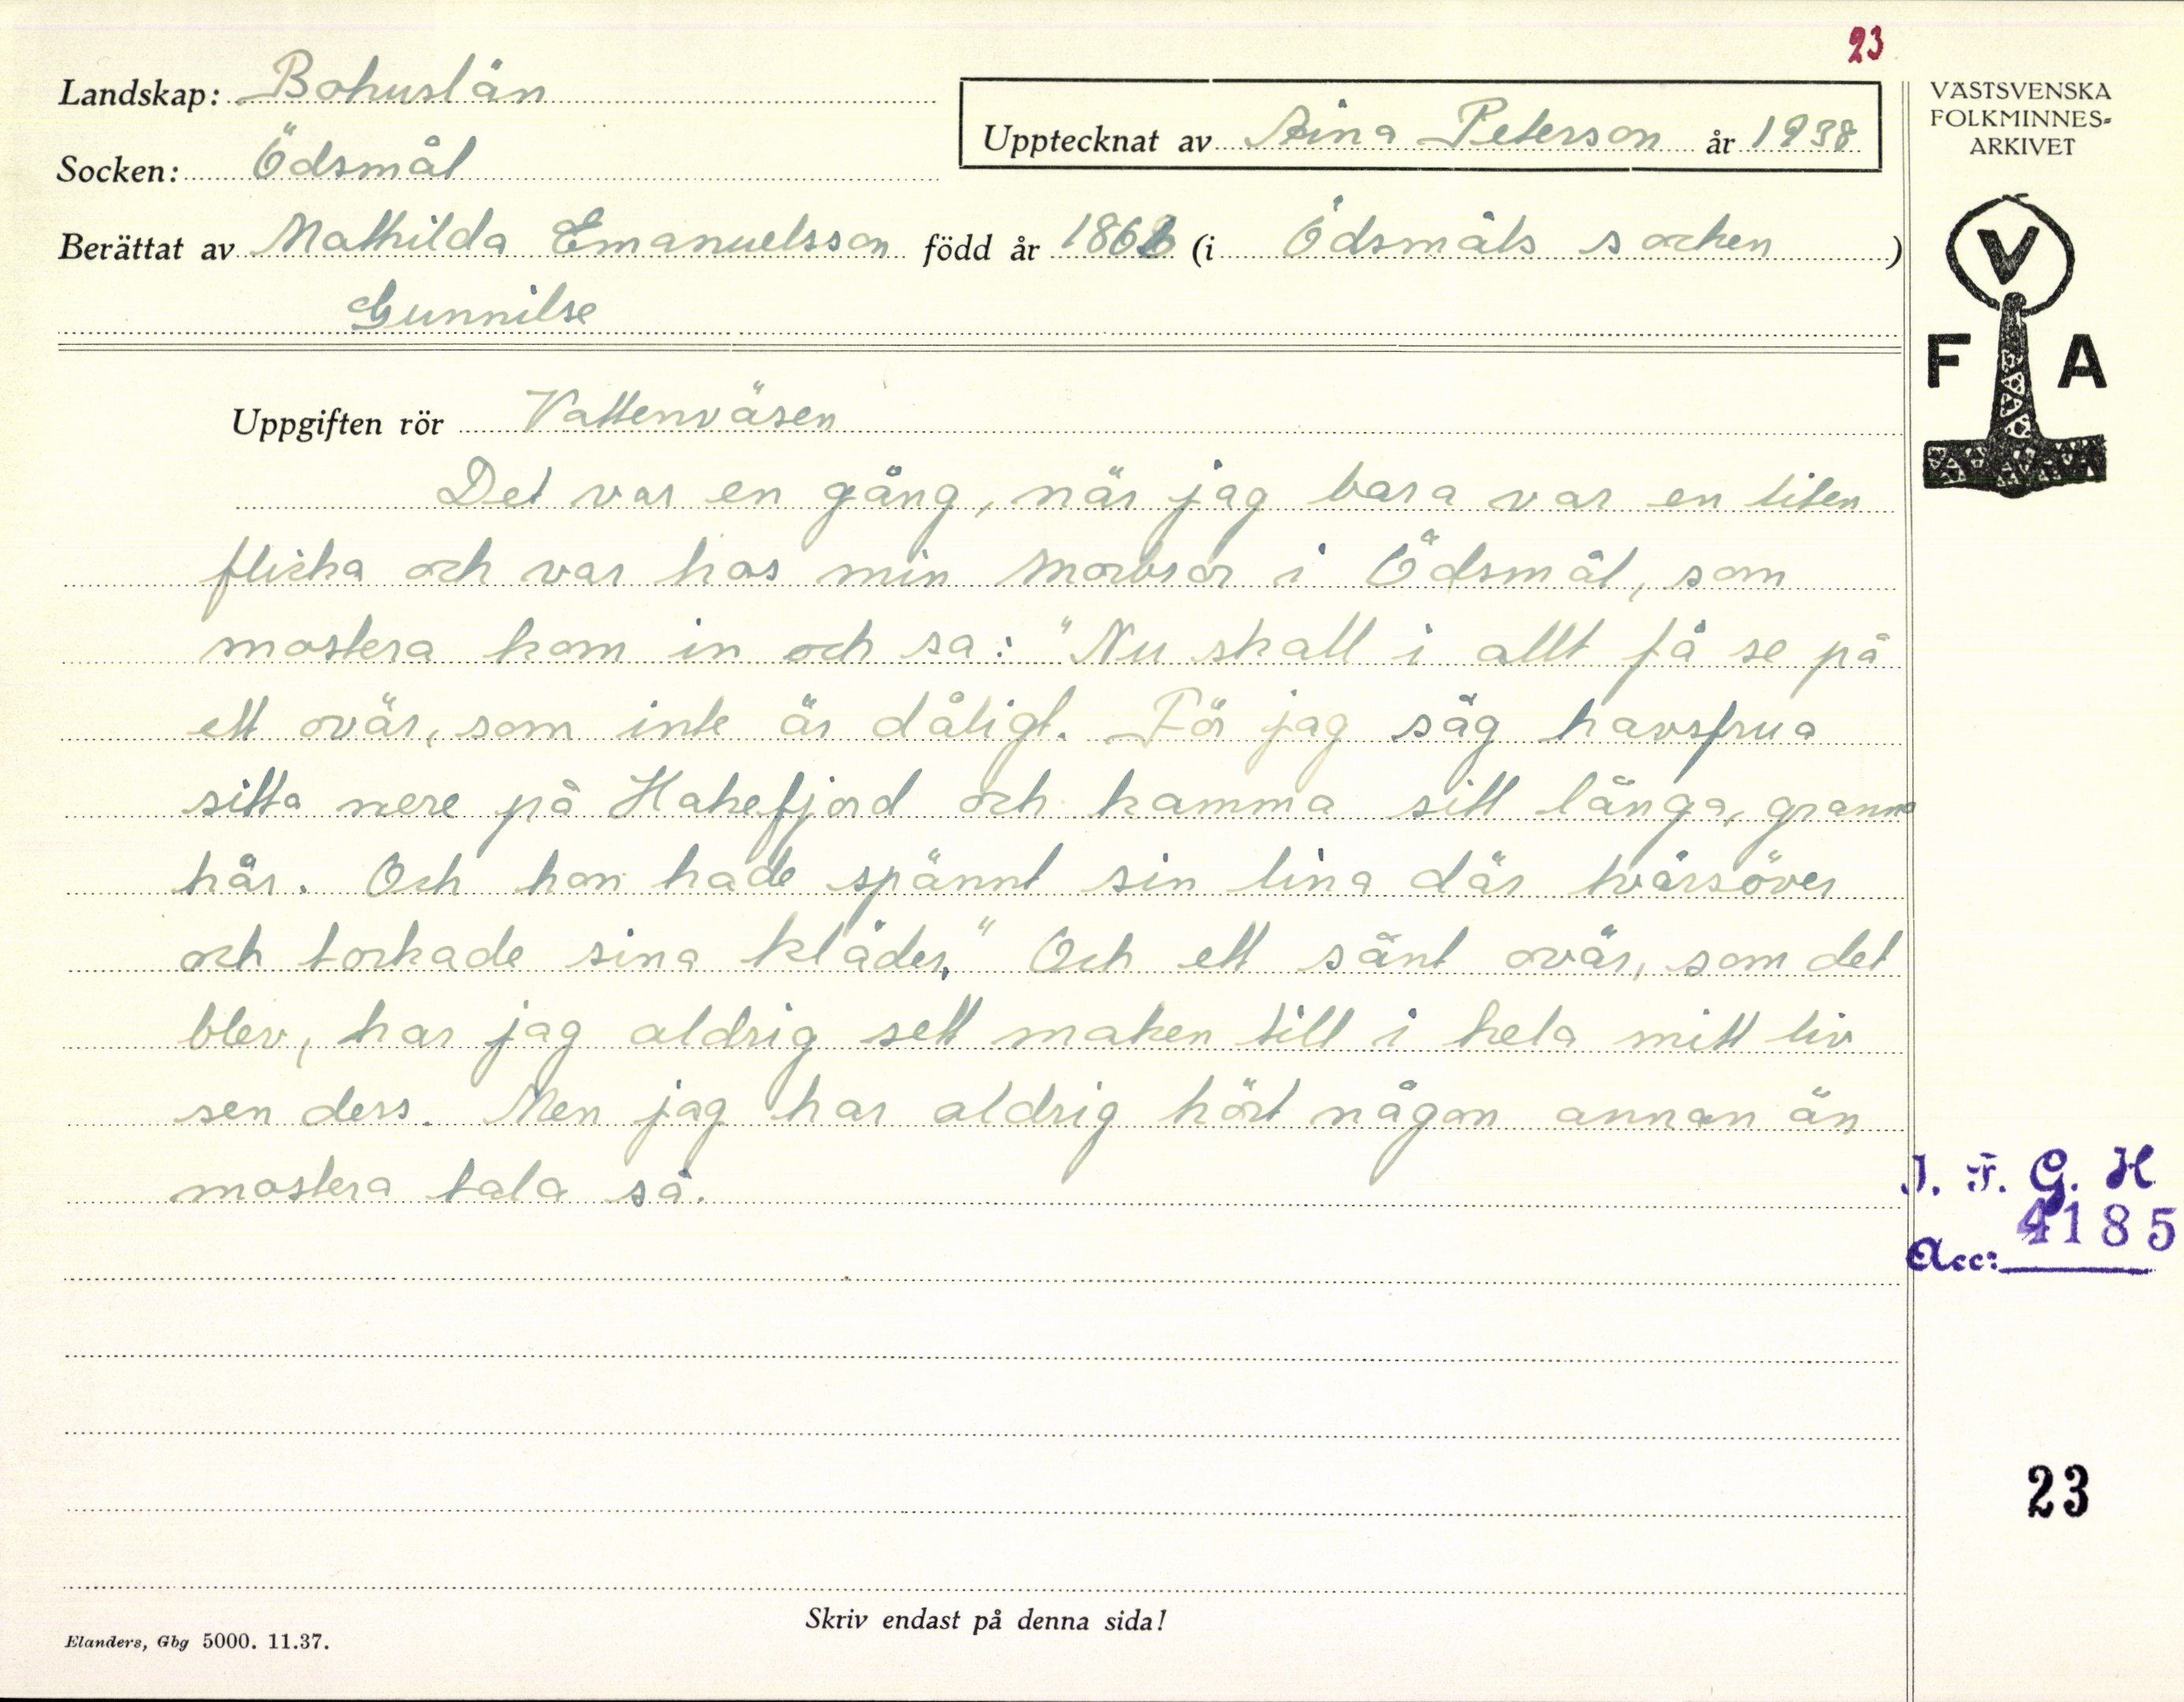 23
Landskap: Bohuslän
Upptecknat av Aina Peterson år 1938
Socken: Ödsmål
Berättat av Mathilda Emanuelsson född år (i Ödsmåls socken)
Gunnilse
VÄSTSVENSKA
FOLKMINNES-
ARKIVET
V
F A
Uppgiften rör Vattenväsen
Det var en gång, när jag bara var en liten
flicka och var hos min morbror i Ödsmål, som
mostera kom in och sa: "Nu skall i allt få se på
ett ovär, som inte är dåligt. För jag såg havsfrua
sitta nere på Hakefjord och kamma sitt långa, granna
hår. Och hon hade spännt sin lina där tvärsöver
och torkade sina kläder." Och ett sånt ovär, som det
blev, har jag aldrig sett maken till i hela mitt liv
sen dess. Men jag har aldrig hört någon annan än
mostera tala så.
I. F. G. H
4185
Acc:
23
Skriv endast på denna sida!
Elanders, Gbg 5000. 11.37.